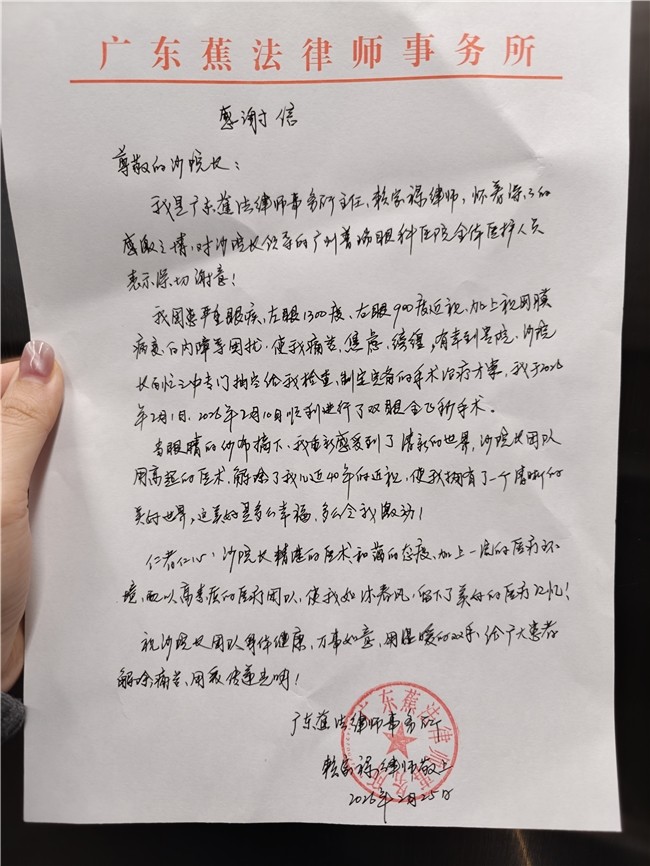 广东蕉法律师事务所
感谢信
尊敬的沙院长：
我是广东蕉法律师事务所主任、赖家禄律师，怀着深深的
感激之情，对沙院长领导的广州普瑞眼科医院全体医护人员
表示深切谢意！
我因患严重眼疾，左眼1300度、右眼900度近视，加上视网膜
病变、白内障等困扰，使我痛苦、焦虑，有幸到贵院，沙院
长百忙之中专门抽空给我检查，制定完善的手术治疗方案，我于2026
年2月1日、2026年2月10日顺利进行了双眼全飞秒手术。
当眼睛的纱布摘下，我重新感受到了清新的世界，沙院长团队
用高超的医术，解除了我近40年的近视，使我拥有了一个清晰的
美好世界，这真的是多么幸福，多么令我激动！
仁者仁心，沙院长精湛的医术和蔼的态度，加上一流的医疗环
境，配以高素质的医疗团队，使我如沐春风，留下了美好的医疗记忆！
祝沙院长团队身体健康，万事如意，用温暖的双手，给广大患者
解除痛苦，用爱传递光明！
广东蕉法律师事务所
赖家禄律师敬上
2026年2月25日
广东蕉法律师事务所